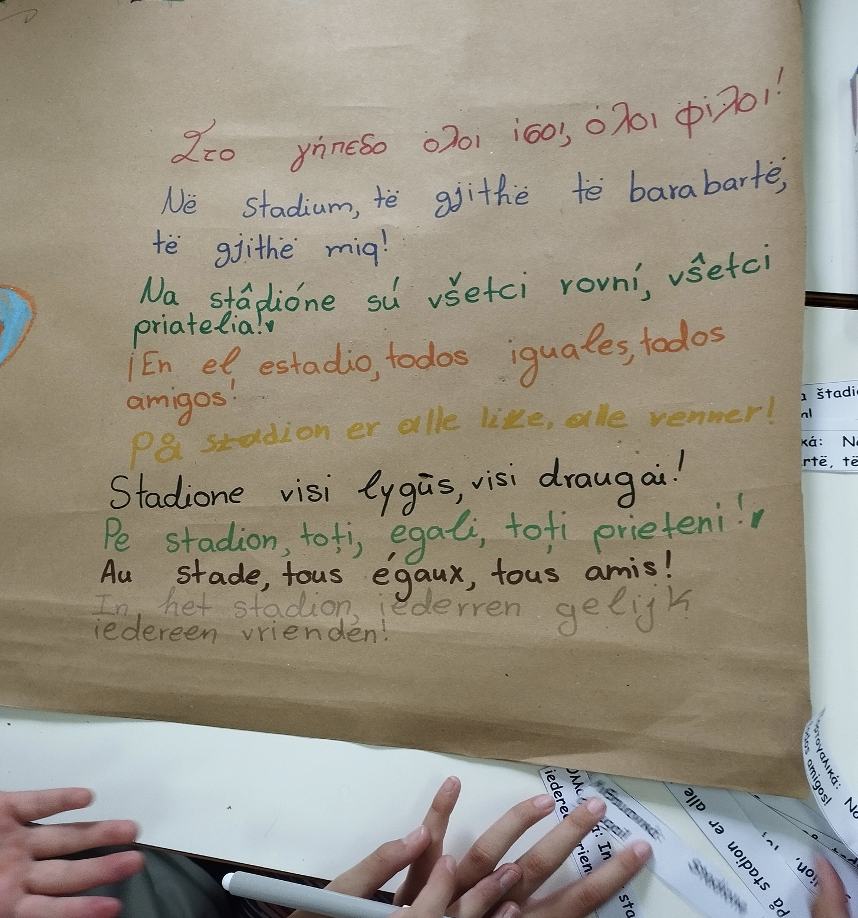 Στο γήπεδο όλοι ίσοι, όλοι φίλοι!
Në stadium, të gjithë të barabartë,
të gjithë miq!
Na stâdióne sú všetci rovní, vŝetci
priatelia!
¡En el estadio, todos iguales, todos
amigos!
På stadion er alle like, alle venner!
Stadione visi lygūs, visi draugai!
Pe stadion, toți, egali, toți prieteni!
Au stade, tous égaux, tous amis!
In het stadion, iederren gelijk
iedereen vrienden!
štadi
κά: N
rtë, të
amigos!
På stadion er alle